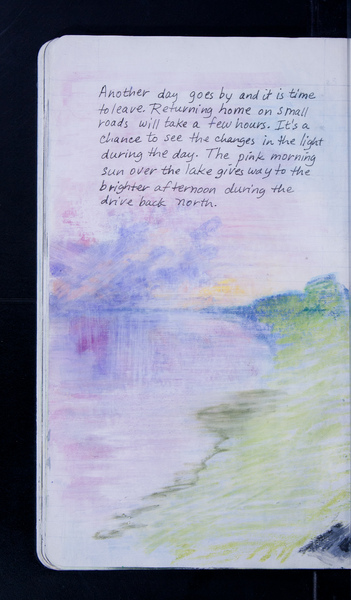 Another day goes by and it is time
to leave. Returning home on small
roads will take a few hours. It's a
chance to see the changes in the light
during the day. The pink morning
sun over the lake gives way to the
brighter afternoon during the
drive back north.